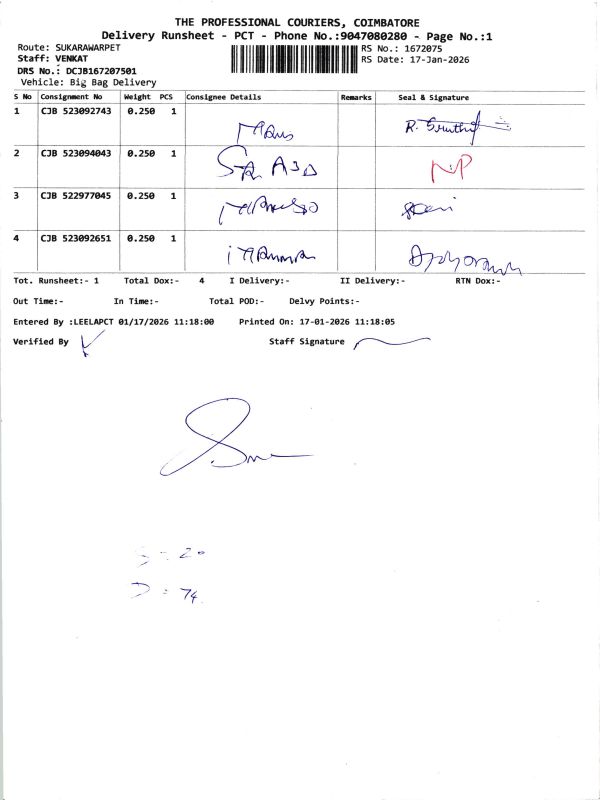 THE PROFESSIONAL COURIERS, COIMBATORE
Delivery Runsheet - PCT - Phone No.:9047080280 - Page No.:1
Route: SUKARAWARPET RS No.: 1672075
Staff: VENKAT RS Date: 17-Jan-2026
DRS No.: DCJB167207501
Vehicle: Big Bag Delivery
S No Consignment No Weight PCS Consignee Details Remarks Seal & Signature
1 CJB 523092743 0.250 1
2 CJB 523094043 0.250 1
3 CJB 522977045 0.250 1
4 CJB 523092651 0.250 1
Tot. Runsheet:- 1 Total Dox:- 4 I Delivery:- II Delivery:- RTN Dox:-
Out Time:- In Time:- Total POD:- Delvy Points:-
Entered By :LEELAPCT 01/17/2026 11:18:00 Printed On: 17-01-2026 11:18:05
Verified By Staff Signature